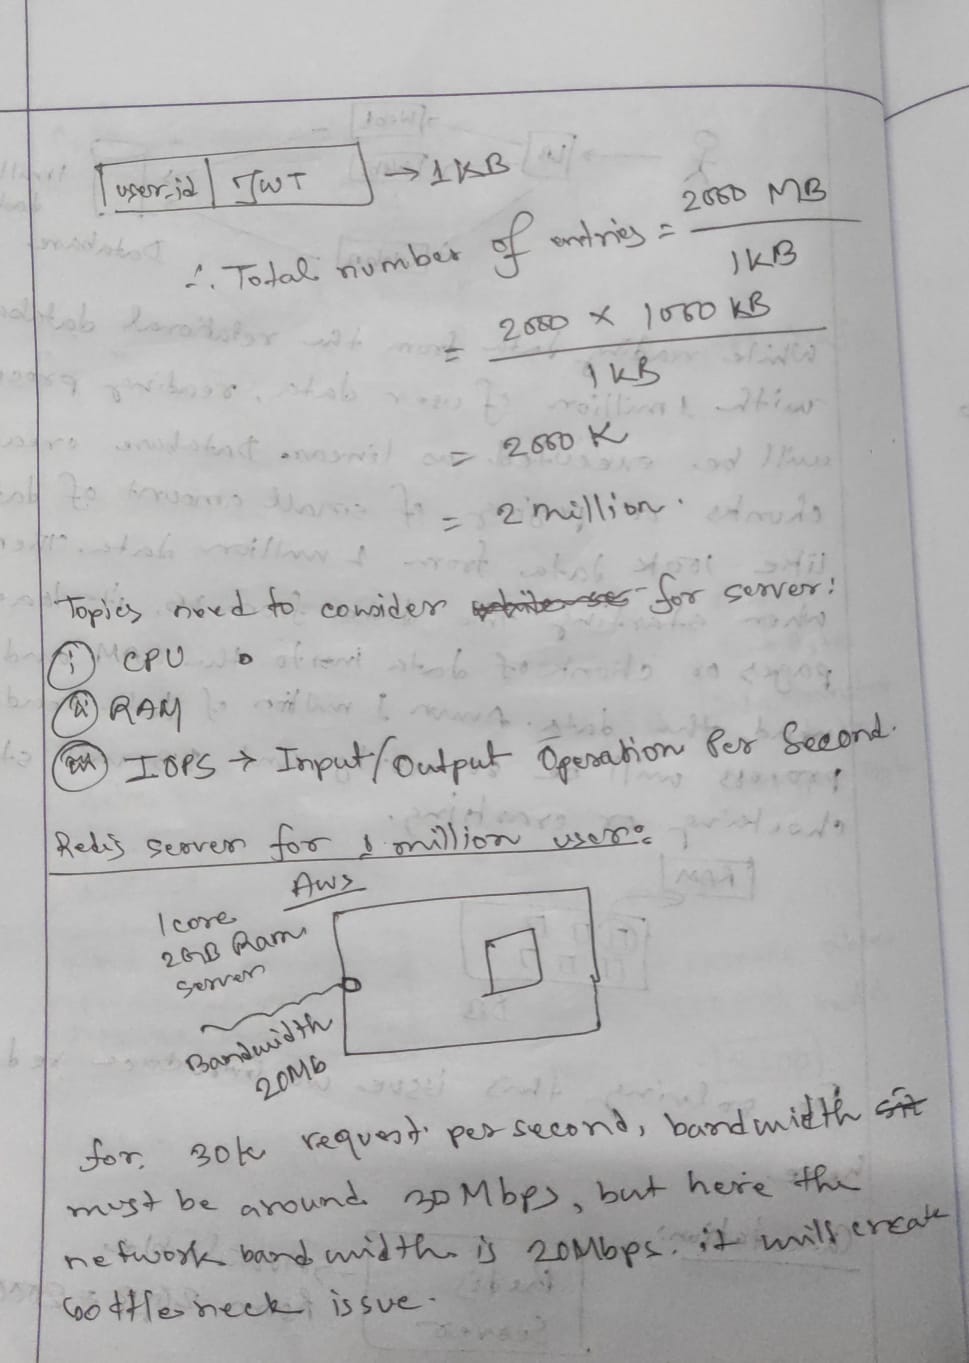 user-id | JWT → 1KB
∴ Total number of entries = 2000 MB / 1KB
= 2000 × 1000 KB / 1 KB
= 2000 K
= 2 million.
Topics need to consider for server:
(i) CPU
(ii) RAM
(iii) IOPS → Input/Output Operation Per Second.
Redis server for 1 million user:
AWS
1 core
2GB Ram
server
Bandwidth
20Mb
for 30k request per second, bandwidth
must be around 30Mbps, but here the
network bandwidth is 20Mbps. it will create
bottleneck issue.